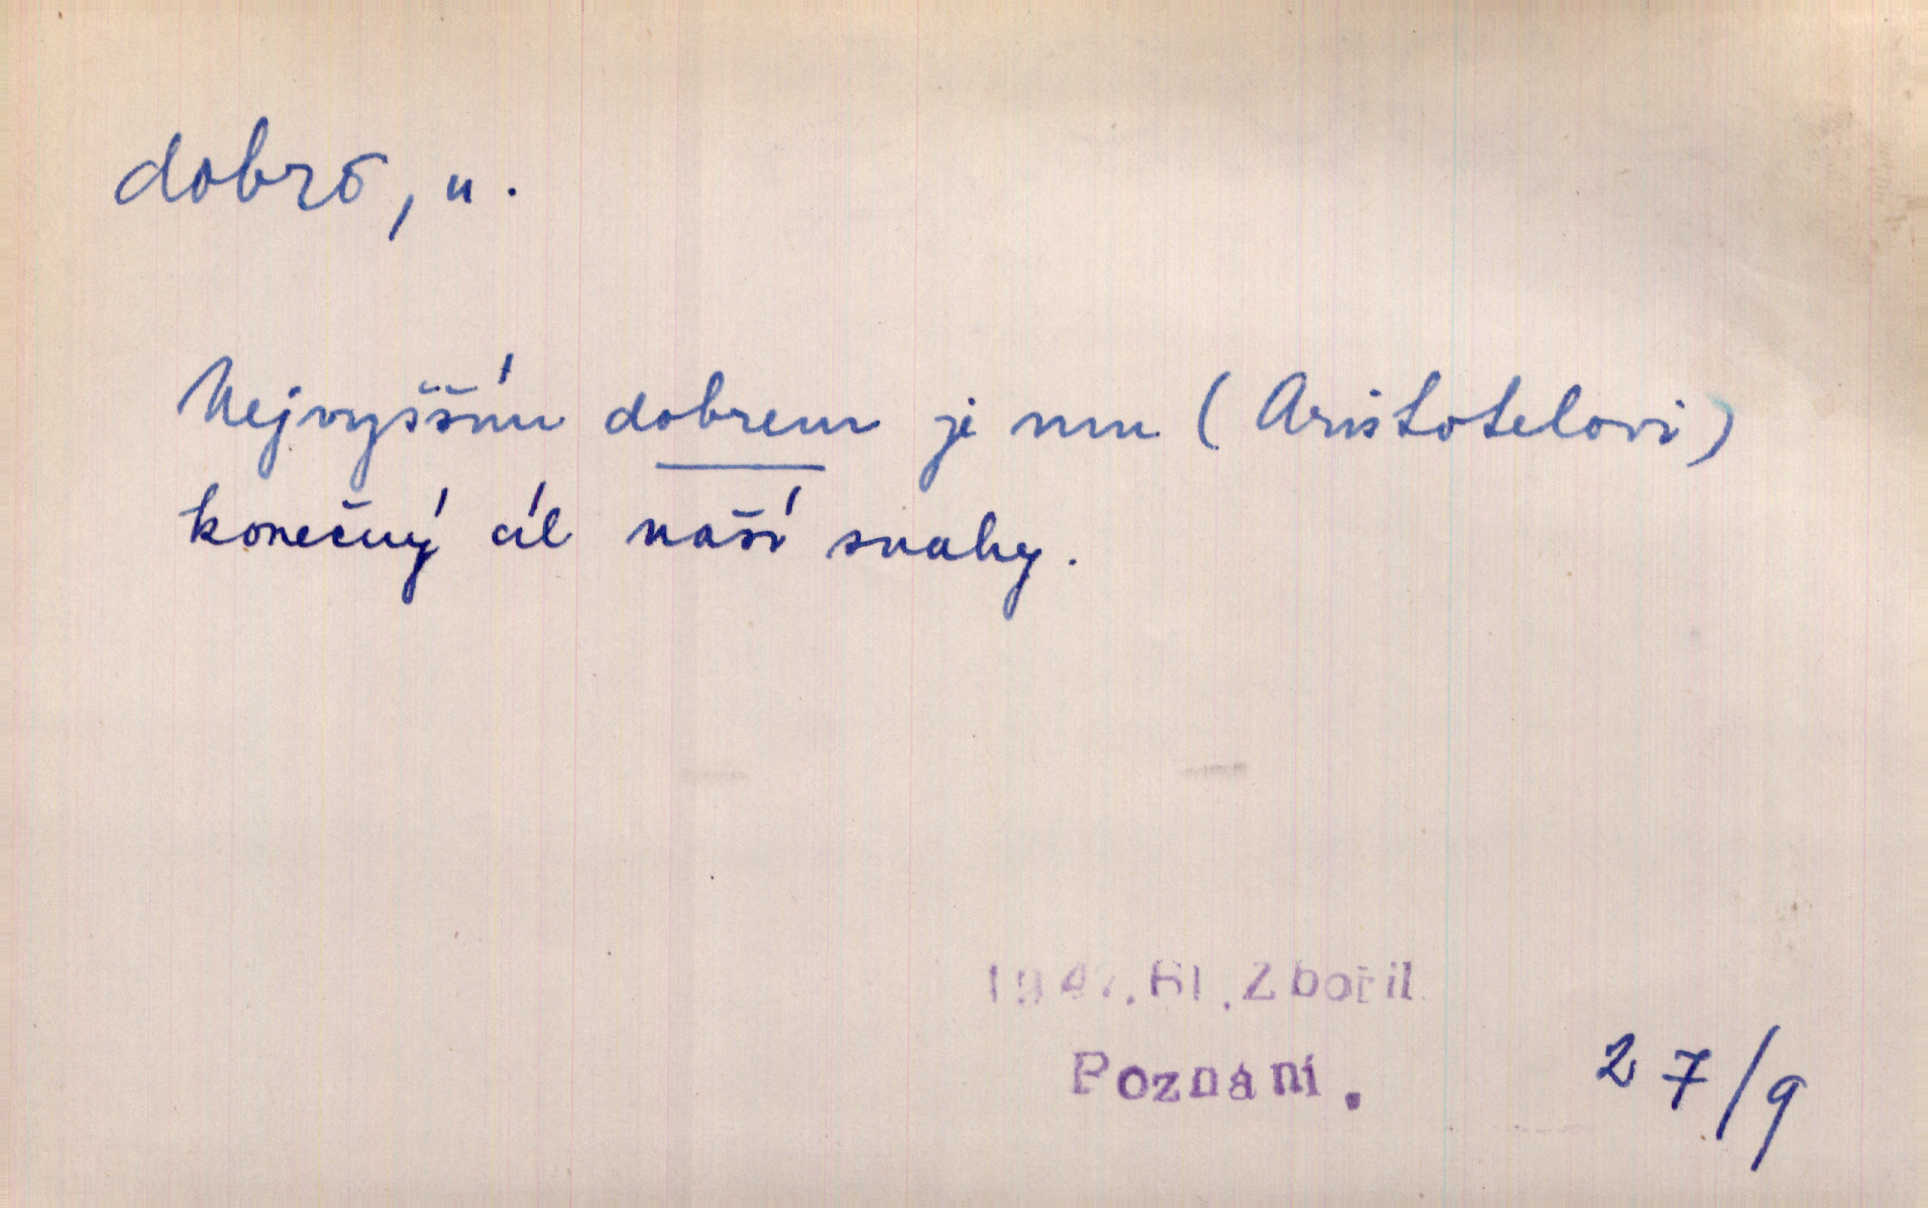 dobro, n.
Nejvyšším dobrem je mu (Aristotelovi)
konečný cíl naší snahy.
1947. Bl. Zbořil
Poznání.
27/9